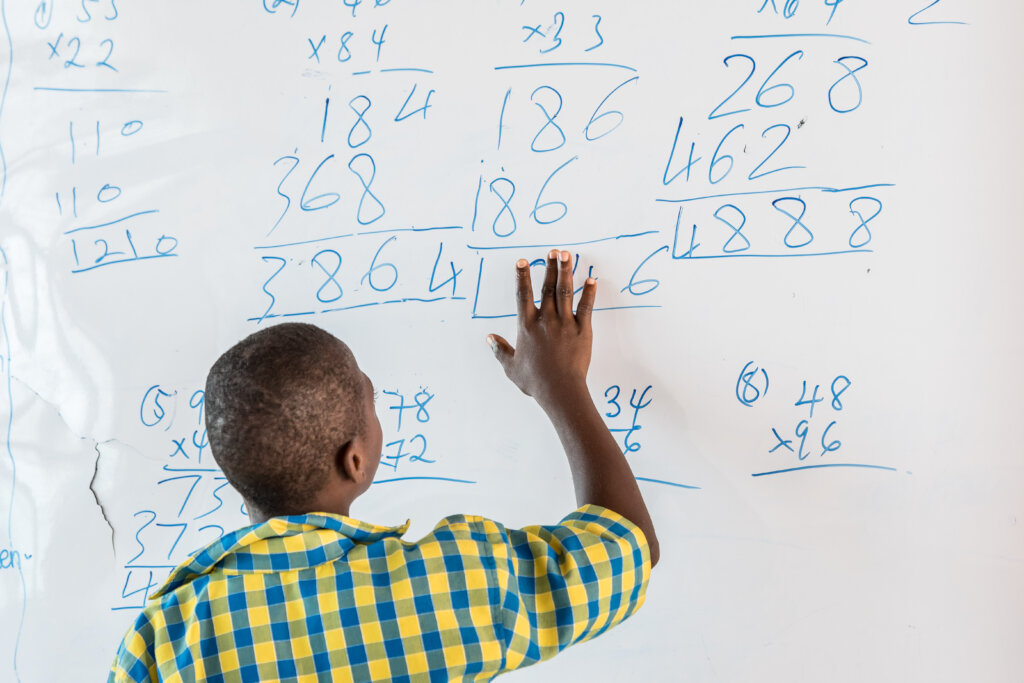 (1) 55
×22
110
110
1210
(2) 46
×84
184
368
3864
×33
186
186
6
×64
268
462
4888
(5) 9
×4
373
4
78
72
34
6
(8) 48
×96